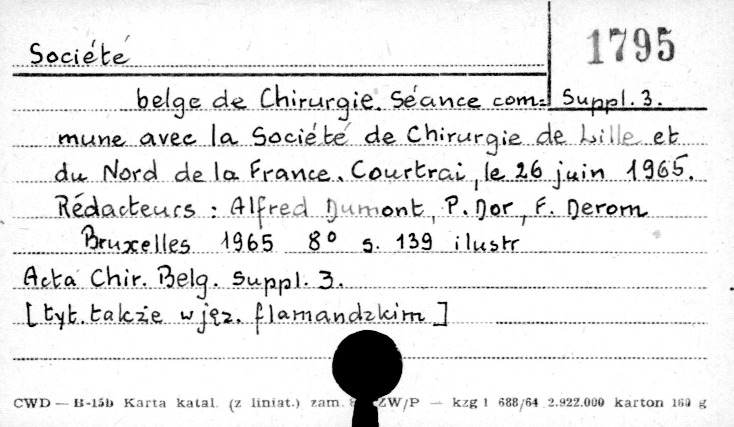 1795
Société
belge de Chirurgie. Séance com= Suppl. 3.
mune avec la Société de Chirurgie de Lille et
du Nord de la France. Courtrai, le 26 juin 1965.
Rédacteurs : Alfred Dumont, P. Dor, F. Derom
Bruxelles 1965 8° s. 139 ilustr
Acta Chir. Belg. Suppl. 3.
[tyt. także w jęz. flamandzkim]
CWD — B-15b Karta katal. (z liniat.) zam. ZW/P — kzg 1 688/64 2.922.000 karton 160 g